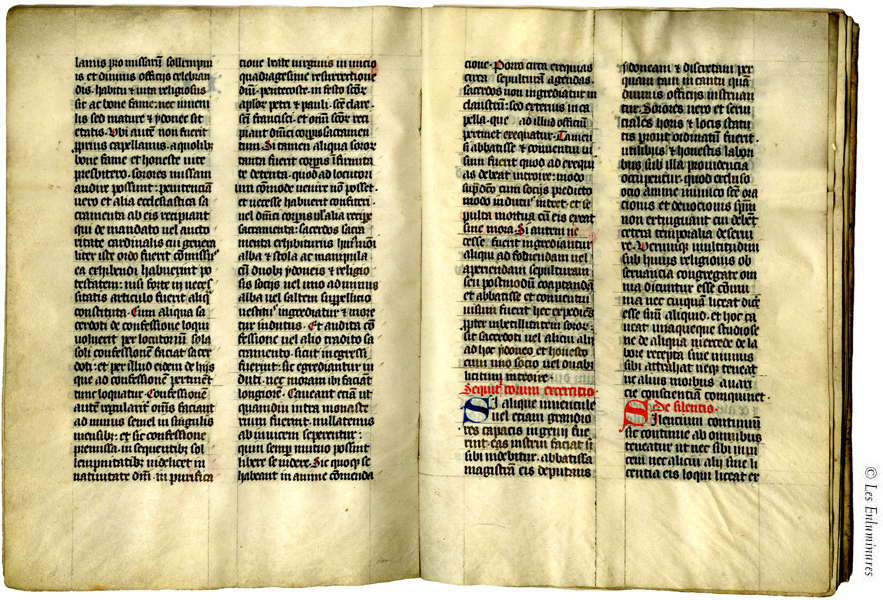 lanus pro missarū sollempni
is et diuinis officijs celebran
dis. habitu et uita religiosus
sit ac bone fame. nec iuueni
lis sed mature et ydonee sit
etatis. Vbi autē non fuerit
proprius capellanus. a quolibet
bone fame et honeste uite
presbitero. sorores missam
audire possunt. penitenciā
uero et alia ecclesiastica sa
cramenta ab eis recipiant
qui de mandato uel aucto
ritate cardinalis cui genera
liter iste ordo fuerit cōmissus
ea exhibendi habuerint po
testatem. nisi forte in neces
sitatis articulo fuerit aliqͣ
constituta. Cum aliqua sa
cerdoti de confessione loqui
uoluerit per locutoriū sola
soli confessionē faciat sacer
doti. et per illud eidem de hijs
que ad confessionē pertinēt
tunc loquatur. Confessionē
autē regulariter om̄s faciant
ad minus semel in singulis
mensibꝫ. et sic confessione
premissa. in sequentibꝫ sol
lempnitatibꝫ uidelicet in
natiuitate dn̄i. in purifica
cione beate uirginis in inicio
quadragesime resurrectione
dn̄i. pentecoste. in festo scōꝝ
aplōꝝ petri et pauli. scē clare.
scī francisci. et om̄i scōꝝ reci
piant dn̄ici corpꝰs sacramen
tum. Si tamen aliqua soror
tanta fuerit corpꝰs īfirmita
te detenta. quod ad locutori
um cōmode uenire nō posset.
et necesse habuerit confiteri.
uel dn̄ici corpꝰs uel alia recipe
sacramenta. sacerdos sacra
menta exhibiturus
alba et stola ac manipula
cū duobꝫ ydoneis et religio
sis socijs uel uno ad minus
alba uel saltem suppellicio
uestitis ingrediatur et more
tur indutus. Et audita cō
fessione uel alio tradito sa
cramento. sicut ingressi
fuerint. sic egrediantur in
duti. nec moram ibi faciāt
longiorē. Caueant eciā ut
quamdiu intra monaste
rium fuerint. nullatenus
ab inuicem seperentur.
quin semper mutuo possint
libere se uidere. Sic quoqꝫ se
habeant in anime cōmenda
cione. Porro circa exequias
circa sepulturā agendas.
sacerdos non ingrediatur in
claustrū. sed exterius in ca
pella. que ad illud officiū
pertinet exequatur. Tamen
si abbatisse et conuentui ui
sum fuerit quod ad exequi
as debeat introire. modo
supdcō cum socijs predicto
modo indutꝰ introet. et se
pulta mortua cū eis exeat
sine mora. Si autem ne
cesse fuerit ingrediantur
aliqui ad fodiendam uel
aperiendam sepulturam
seu postmodū coaptandā
et abbatisse et conuentui
uisum fuerit hoc expediēs
propter inbecillitatem soroꝝ.
sit sacerdoti uel alicui alij
ad hoc ydoneo et honesto
cum uno socio uel duobꝫ
licitum introire.
Sequitur soroꝝ exercitio
Si alique iuuencule
uel eciam grandio
res capacis ingenij fue
rint. eas instrui faciat si
sibi uidebitur. abbatissa
magistrā eis deputans
ydoneam et discretam per
quam tam in cantu quā
diuinis officijs instruan
tur. Sorores uero et serui
ciales horis et locis statu
tis prout ordinatū fuerit.
utilibus et honestis labori
bus sub illa prouidencia
occupentur. quod excluso
ocio anime inimico scē ora
cionis et deuocionis spm̄
non extinguant cui debēt
cetera temporalia deserui
re. Verumqꝫ multitudini
sub huius religionis ob
seruancia congregate om
nia dicuntur esse cōmu
nia nec cuiquā liceat dice
esse suū aliquid. et hoc ca
ueat unaqueque studiose
ne de aliqua mercede de la
bore recepta siue munus
sibi attrahat neqꝫ teneat
ne alius morbus auari
cie conscientiā conquinet.
De silentio.
Silencium continuū
sic continue ab omnibus
teneatur ut nec sibi inui
cem nec alicui alij sine li
centia eis loqui liceat ex
5
© Les Enluminures